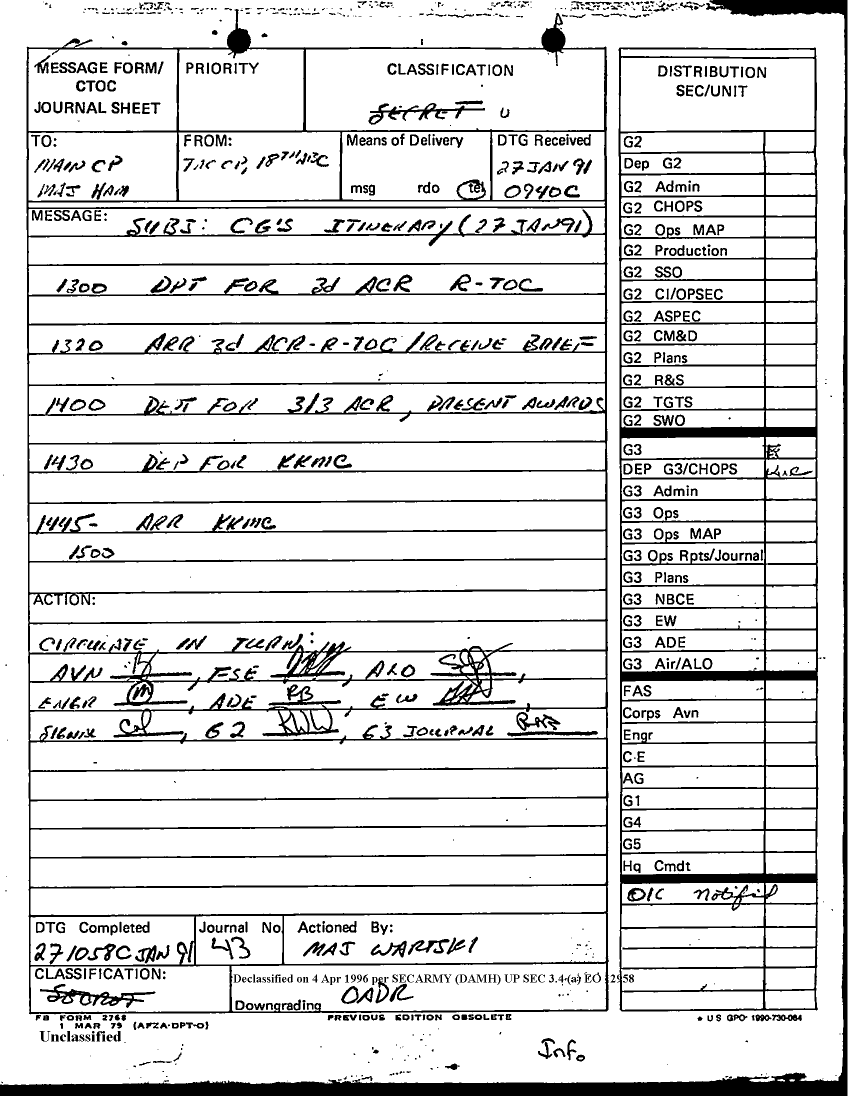 MESSAGE FORM/
CTOC
JOURNAL SHEET
PRIORITY
CLASSIFICATION
SECRET U
TO:
MAIN CP
MAJ HAM
FROM:
TAC CP, 18TH ABC
Means of Delivery
msg rdo tel
DTG Received
27 JAN 91
0940C
MESSAGE: SUBJ: CG'S ITINERARY (27 JAN 91)
1300 DPT FOR 3d ACR R-TOC
1320 ARR 3d ACR-R-TOC/RECEIVE BRIEF
1400 DEPT FOR 3/3 ACR, PRESENT AWARDS
1430 DEP FOR KKMC
1445- ARR KKMC
1500
ACTION:
CIRCULATE IN TURN:
AVN , FSE , ALO ,
ENGR M , ADE RB , EW ,
SIGNIX , G2 RWW , G3 JOURNAL
DTG Completed
271058C JAN 91
Journal No.
43
Actioned By:
MAJ WARTSKI
CLASSIFICATION:
SECRET
Declassified on 4 Apr 1996 per SECARMY (DAMH) UP SEC 3.4 (a) EO 12958
Downgrading OADR
FB FORM 2768
1 MAR 79 (AFZA-DPT-O)
PREVIOUS EDITION OBSOLETE
* U S GPO: 1990-730-084
Unclassified
Info
DISTRIBUTION
SEC/UNIT
G2
Dep G2
G2 Admin
G2 CHOPS
G2 Ops MAP
G2 Production
G2 SSO
G2 CI/OPSEC
G2 ASPEC
G2 CM&D
G2 Plans
G2 R&S
G2 TGTS
G2 SWO
G3
DEP G3/CHOPS
G3 Admin
G3 Ops
G3 Ops MAP
G3 Ops Rpts/Journal
G3 Plans
G3 NBCE
G3 EW
G3 ADE
G3 Air/ALO
FAS
Corps Avn
Engr
C-E
AG
G1
G4
G5
Hq Cmdt
OIC notified